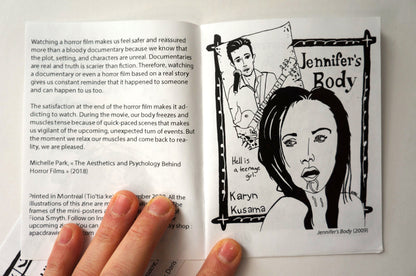 Watching a horror film makes us feel safer and reassured
more than a bloody documentary because we know that
the plot, setting, and characters are unreal. Documentaries
are real and truth is scarier than fiction. Therefore, watching
a documentary or even a horror film based on a real story
gives us constant reminder that it happened to someone
and can happen to us too.
The satisfaction at the end of the horror film makes it ad-
dicting to watch. During the movie, our body freezes and
muscles tense because of quick-paced scenes that makes
us vigilant of the upcoming, unexpected turn of events. But
the moment we relax our muscles and come back to rea-
lity, we are pleased.
Michelle Park, « The Aesthetics and Psychology Behind
Horror Films » (2018)
Printed in Montréal (Tio'tia:ke) All the
illustrations of this zine are
frames of the mini-posters
Fiona Smyth. Follow on
upcoming You can shop
apacdrawing
Jennifer's
Body
Hell is
a teenage
girl.
Karyn
Kusama
Jennifer's Body (2009)